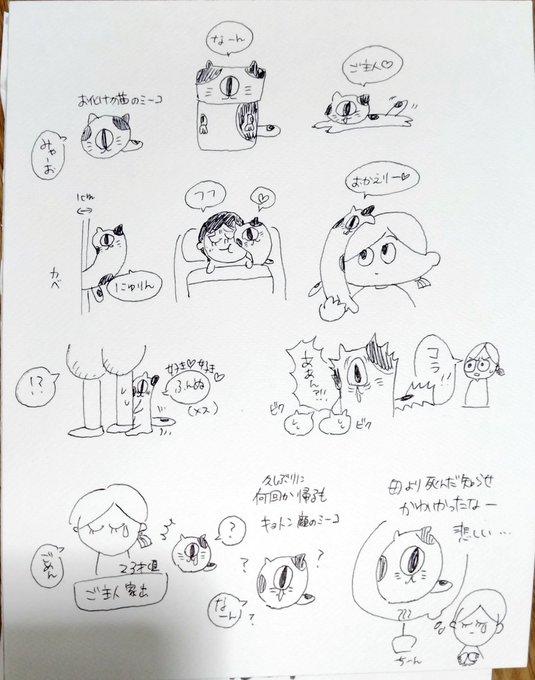 お化け猫のミーコ
みゃーお
なーん
ご主人♡
1cm
カベ
にゅりん
フフ
♡
おかえりー♡
!?
好き♡好き♡
ふんぬ
(メス)
ああん?!!
ビク
ビク
コラ!!
ごめん
23才頃
ご主人家出
?
なーん
?
?
?
久しぶりに
何回か帰るも
キョトン顔のミーコ
母より死んだ知らせ
かわいかったなー
悲しい…
ちーん